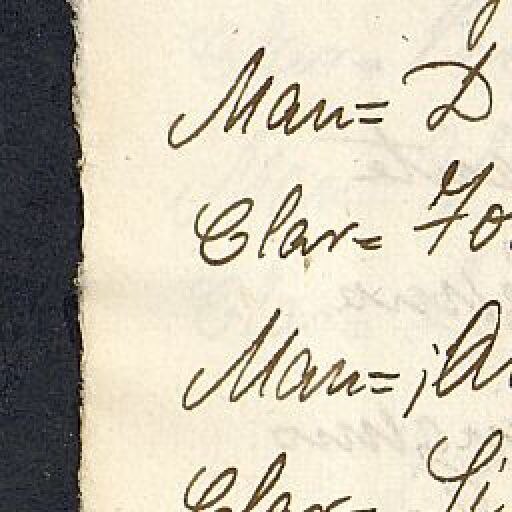 Man= D
Clar= Yo
Man= ¡A
Clar= Si